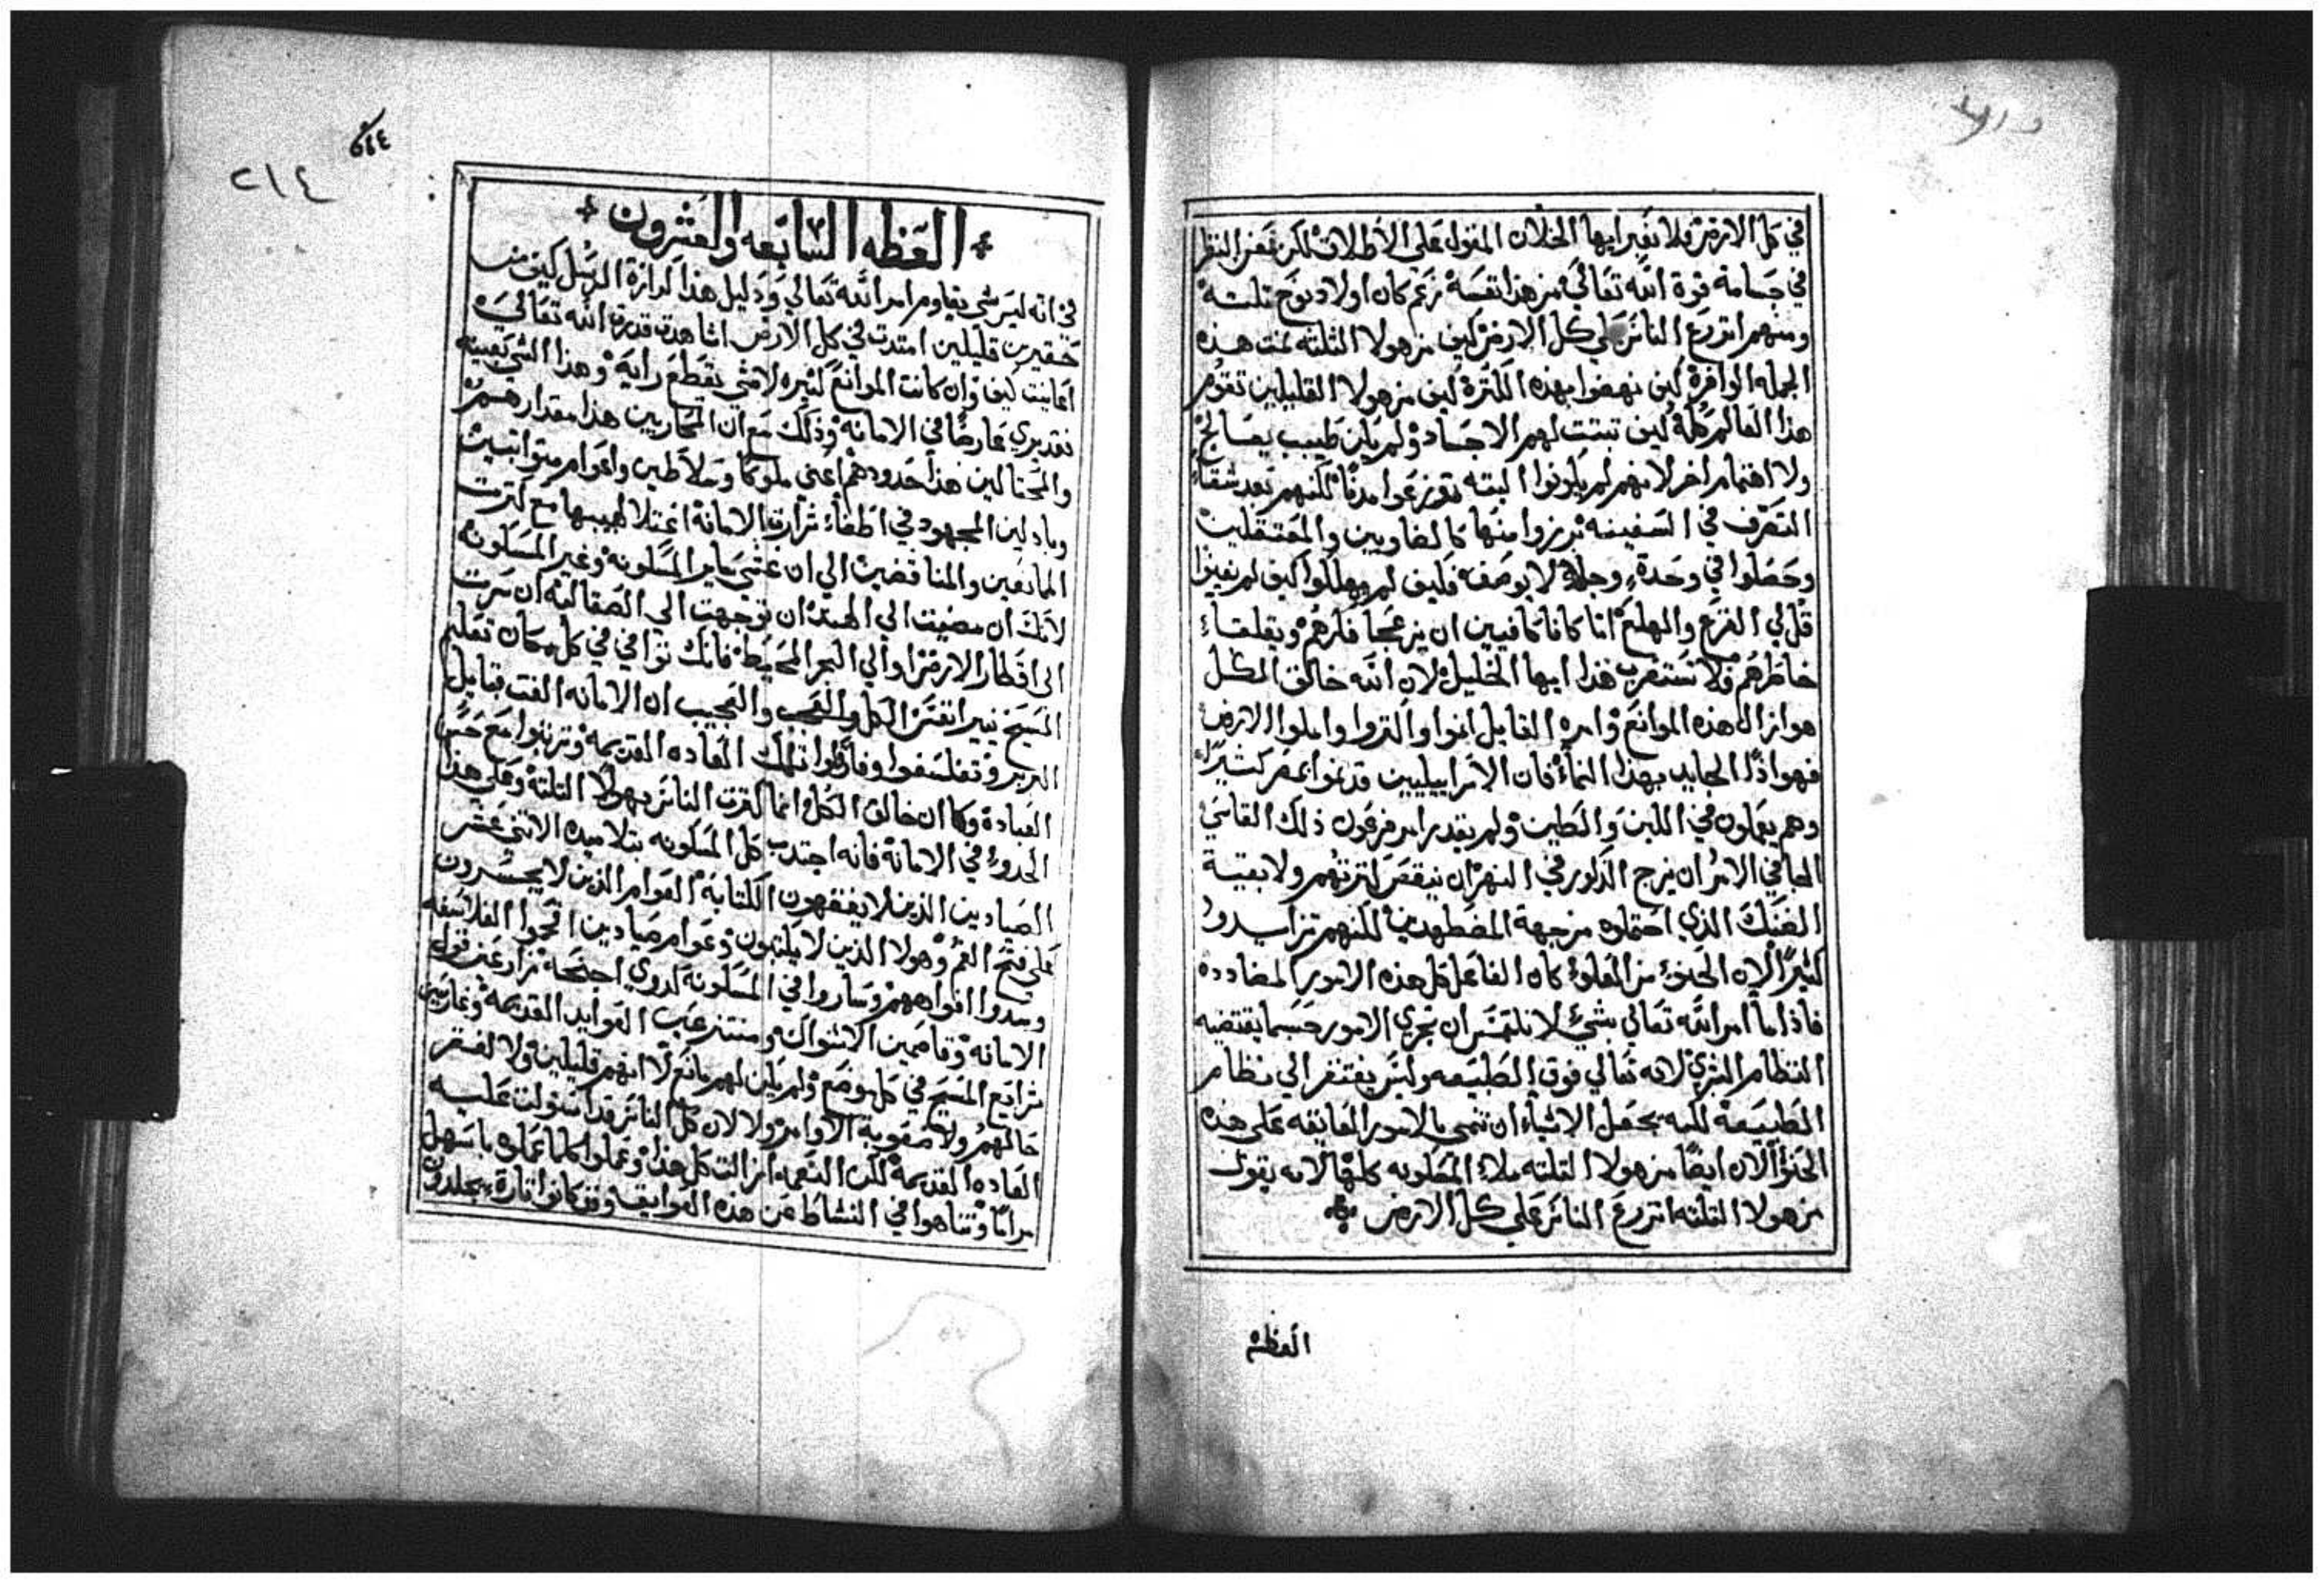 في كل الارض فلا تعبر ايها الخلان القول على الاطلاق لكن تمعن النظر
في جسامة قوة الله تعالى من هذا نفسه زعم كان اولاد نوح ثلثه
ومنهم اتزرع الناس على كل الارض كيف من هولا الثلثه نمت هذه
الجمله الوافره كيف نهضوا بهذه الكثرة كيف من هولا القليلين تقوم
هذا العالم كله كيف تبتت لهم الاجساد ولم يكن طبيب يعالج
ولا اهتمام اخر لانهم لم يكونوا البته توزعوا مدنا لكنهم بعد شقاء
التصرف في السفينه برزوا منها كالضاويين والمعتقلين
وحصلوا في وحدة وجلاء لا يوصف فكيف لم يهلكوا كيف لم يفنوا
قل لي الفزع والهلع اما كانا كافيين ان يزعجا فكرهم ويقلقا
خاطرهم فلا تستغرب هذا ايها الخليل لان الله خالق الكل
هو ازال هذه الموانع وامره القايل انموا واكثروا واملوا الارض
فهو اذا الجايد بهذا النماء فان الاسراييليين قد نموا بمصر كثيرا
وهم يعملون في اللبن والطين ولم يقدر امر فرعون ذلك القاسي
الجافي الامر ان يزج الذكور في النهر ان ينقص كثرتهم ولا بقية
الضنك الذي احتملوه من جهة المضطهدين لكنهم تزايدوا
كثيرا لان الحنو من العلو كان الفاعل كل هذه الامور المضادده
فاذا ما امر الله تعالى بشي لا نلتمس ان تجري الامور حسبما يقتضيه
النظام البشري لانه تعالي فوق الطبيعه وليس يفتقر الي نظام
الطبيعة لكنه يجعل الاشياء ان تنمي بالامور العايقه علي هذه
الحذو الان ايضا من هولا الثلثه ملاء المسكونه كلها لانه يقول
من هولا الثلثه اتزرع الناس على كل الارض
العظه
٢١٤
العظه السابعه والعشرون
في انه ليس شي يقاوم امر الله تعالي ودليل هذا كرازة الرسل كيف من
حقيرين قليلين امتدت في كل الارض اشاهدت قدرة الله تعالي
اعاينت كيف وان كانت الموانع كثيره لا شي يقطع رايه وهذا الشي بعينه
نقد يري عارضا في الامانه وذلك مع ان المحاربين هذا مقدارهم
والمحتالين هذا حدودهم اعني ملوكا وسلاطين واعوام متواثبين
وباذلين المجهود في اطفاء شرارة الامانة اعتلا لهيبها مع كثرت
المانعين والمناقضين الي ان غشي ساير المسكونه وغير المسكونه
لانك ان مضيت الي الهند ان توجهت الي الصقالبه ان سرت
الى اقطار الارض او الي البحر المحيط فانك توافي في كل مكان تعليم
المسيح نيرا نفس الكل والعجب والعجيب ان الامانه الفت قبايل
البربر وتفلسفوا وفارقوا تلك العاده القديمه وترتبوا مع حسن
العبادة وكما ان خالق الكل انما اكثرت الناس بهولا الثلثه وعلي هذا
الحدو في الامانة فانه اجتدب كل المسكونه بتلاميده الاتني عشر
الصيادين الذين لا يفقهون الكتابة العوام الذين لا يجسرون
على فتح الفم وهولا الذين لا يكتبون وعوام صيادين افحموا الفلاسفه
وسدوا افواههم وساروا في المسكونه كدوي اجنحه
الامانه وقاطعين الاشواك القديمه
شرايع المسيح في كل موضع ولم يكن لهم مانع لا انهم قليلين ولا لفقر
حالهم ولا صعوبة الاوامر ولا لان كل الناس قد استولت عليه
العاده القديمه لكن النعمه ازالت كل هذا وعملوا كلما عملوه باسهل
مراما وتناهوا في النشاط عن هذه العوايق وقد كانوا تارة يجلدون